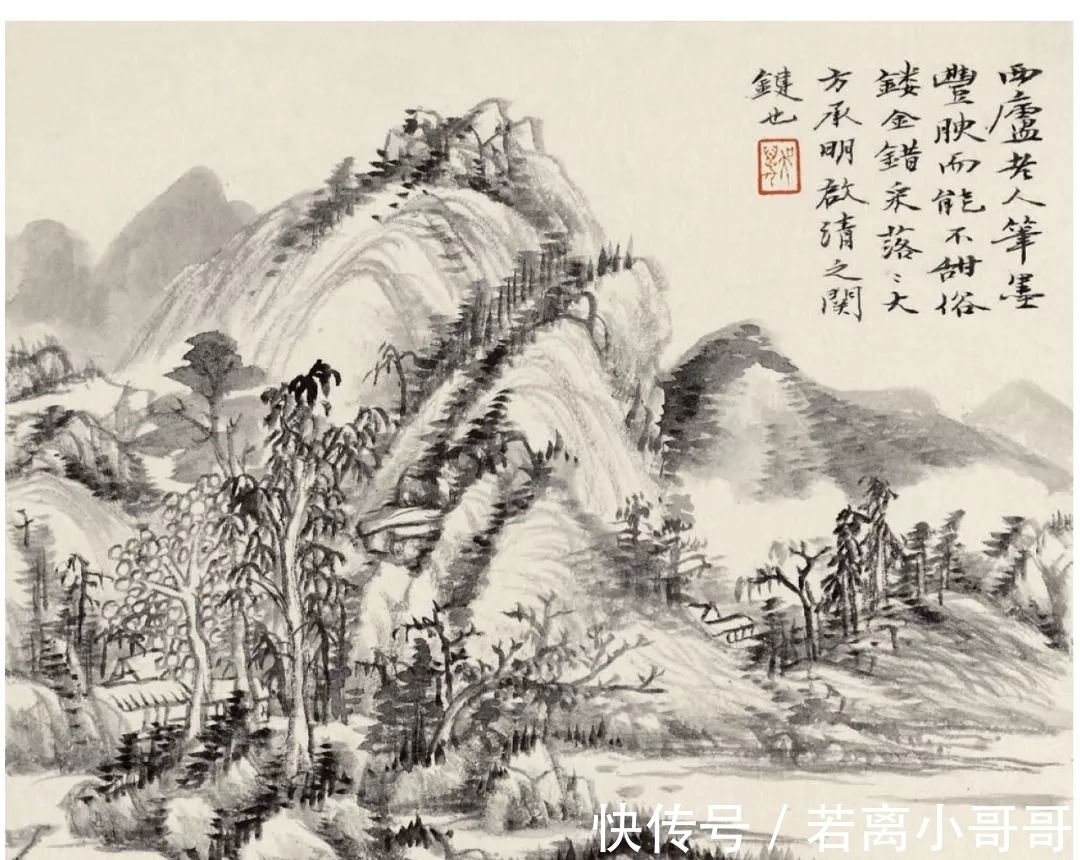 西廬老人筆墨
豐腴而能不甜俗
鏤金錯采落〻大
方承明啟清之關
鍵也
快传号 / 若离小哥哥